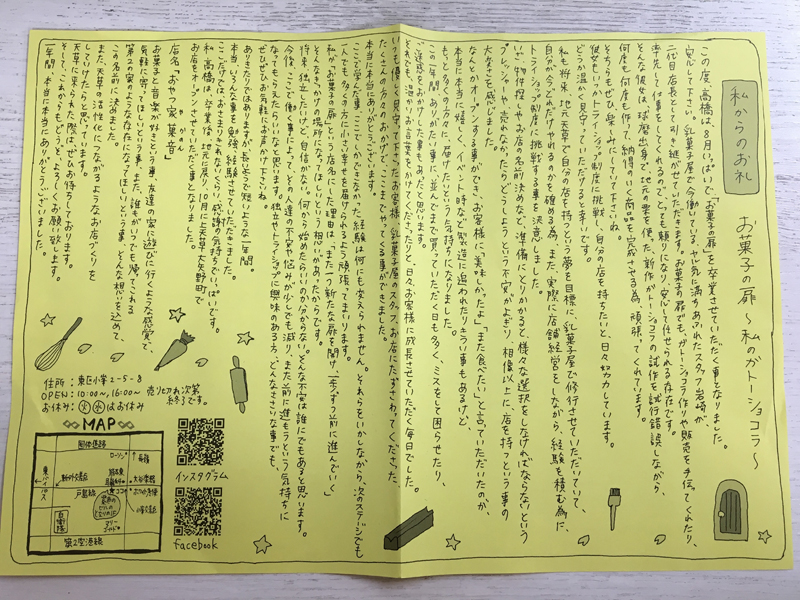 私からのお礼
お菓子の扉 〜私のガトーショコラ〜
この度、高橋は、8月いっぱいで「お菓子の扉」を卒業させていただく事となりました。
安心して下さい。乳菓子屋で今働いている、ヤル気に満ちあふれたスタッフ岩崎が、
二代目店長として引き継がせていただきます。お菓子の扉でも、ガトーショコラ作りや販売を手伝ってくれたり、
率先して仕事をしてくれるので、とっても頼りになり、安心して任せられる存在です。
そんな彼女は、球磨出身で、地元の栗を使った、新作ガトーショコラの試作を試行錯誤しながら、
何度も何度も作って、納得のいく商品を完成させる為、頑張ってくれています。
そちらもぜひ楽しみにしていて下さいね。
彼女もいつかトライショップ制度に挑戦し、自分の店を持ちたいと、日々努力しています。
どうか温かく見守っていただけると幸いです。
私も将来、地元天草で自分の店を持つという夢を目標に、乳菓子屋で修行させていただいていて、
自分が今どれだけやれるのかを確める為、また、実際に店舗経営をしながら、経験を積む為に、
トライショップ制度に挑戦する事を決意しました。
いざ、物件探しやお店の名前決めなど、準備にとりかかると、様々な選択をしなければならないという
プレッシャーや、売れなかったらどうしようという不安がよぎり、想像以上に、店を持つという事の
大変さを感じました。
なんとかオープンする事ができ、お客様に「美味しかったよ」「また食べたい」と言っていただいたのが、
本当に本当に嬉しく、イベント時など、製造に追われたりとつらい事もあるけど、
もっと多くの方々に届けたいという気持ちになりました。
この一年間、ありがたい事に、並んでまで買っていただいた日も多く、ミスをして困らせたり、
ご迷惑をおかけした事もあったと思います。
それでも、温かいお言葉をかけてくださったりと、日々、お客様に成長させていただく毎日でした。
いつも優しく見守って下さったお客様、乳菓子屋のスタッフ、お店にたずさわってくださった、
たくさんの方々のおかげで、ここまでやってくる事ができました。
本当に本当にありがとうございます。
ここで学んだ事、ここでしかできなかった経験は何にも変えられません。それらをいかしながら、次のステージでも
一人でも、多くの方に小さい幸せを届けられるよう頑張ってまいります。
私が、「お菓子の扉」という店名にした理由は、「また一つ新たな扉を開け、一歩ずつ前に進んでいく」
そんなきっかけの場所になってほしいという想いがあったからです。
将来、独立したいけど、自信がない。何から始めたらいいのか分からない。そんな不安は誰にでもあると思います。
今後、ここで働く事によって、その人達の不安や悩みが少しでも減り、また前に進もうという気持ちに
なってもらえたらいいなと思います。独立やトライショップに興味のある方、どんなささいな事でも、
ぜひぜひお気軽にお声かけ下さいね。
ありきたりではありますが、長いようで短いような一年間。
本当、いろんな事を勉強、経験させていただきました。
ここだけでは、おさまりきれないくらい感謝の気持ちでいっぱいです。
私、高橋は、卒業後、地元に戻り、10月に上天草大矢野町で
お店をオープンさせていただく事となりました。
店名「おやつ家 菓音」
お菓子と音楽が好きという事、友達の家に遊びに行くような感覚で、
気軽に寄ってほしいという事、また、誰もがいつでも帰ってこれる
第2の家のような存在になってほしいという事、そんな想いを込めて、
この名前に決めました。
また、天草の活性化につながるようなお店づくりを
していけたらと思っています。
天草に来られた際は、ぜひお待ちしております。
そして、これからもどうぞ、よろしくお願い致します。
一年間、本当に本当にありがとうございました。
住所:東区小学2-5-8
OPEN:10:00〜16:00〜
売り切れ次第終了です。
お休み:火水はお休み
MAP
国体道路
ローソン
東バイパス
自衛隊
第2空港線
インスタグラム
facebook